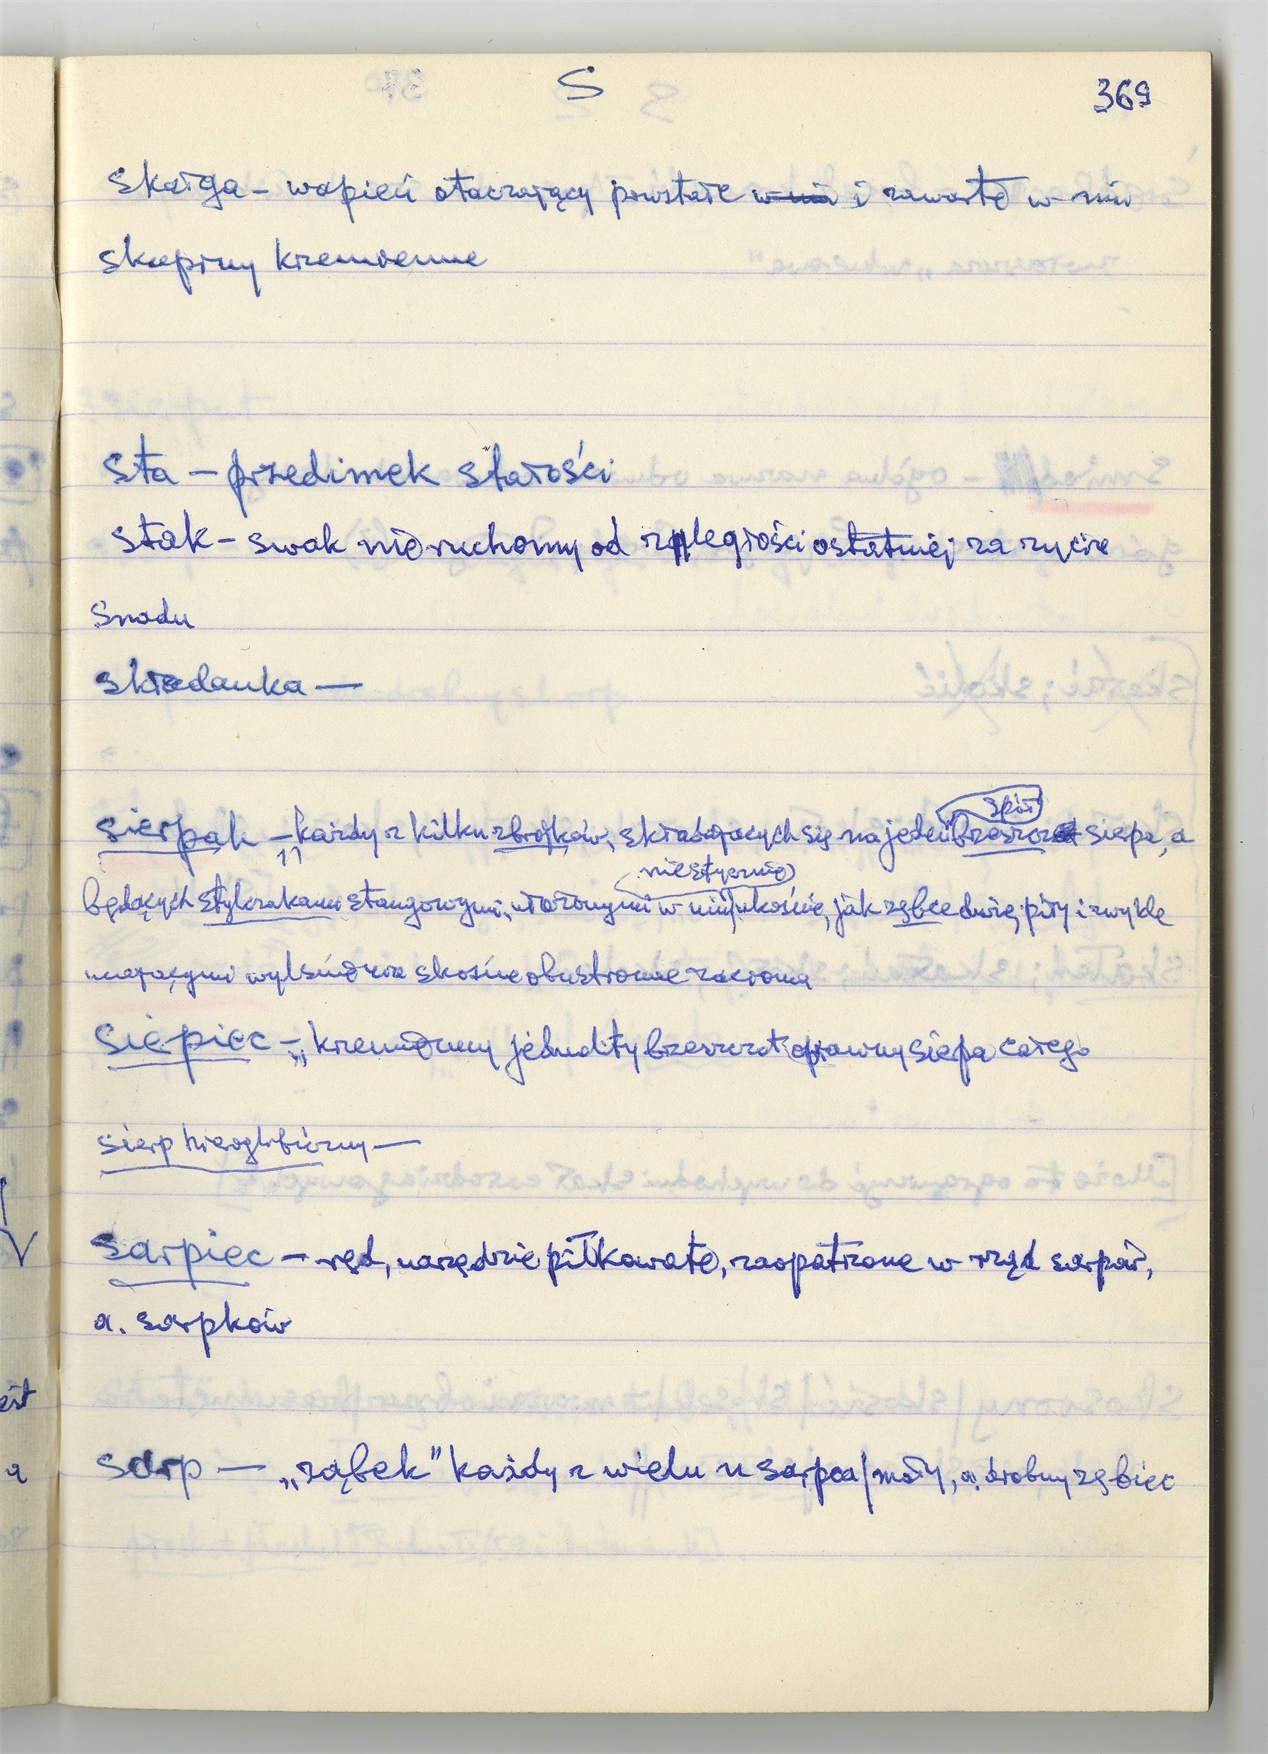 S
369
skałga – wapień otaczający powstałe w nin i zawarte w nim
skupiny krzemienne
sta – przedimek stałości
stak – swak nieruchomy od zaległości ostatniej za życie
snadu
składanka –
sierpak – każdy z kilku zbrojków, składających się na jeden brzeszczot siepa, a
spór
niestycznie
będących stykrakami stangowymi, włożonymi w nim ukośnie, jak zębce dwie piły i zwykle
mającymi wyłśnienia skośne obustronne
siepiec – „krzemienny jednolity brzeszczot oprawny siepa całego
sierp hieroglificzny –
sarpiec – ręd, narzędzie piłkowate, zaopatrzone w rząd sarpów,
a. sarpków
sarp – „ząbek” każdy z wielu u sarpca / mały, a. drobny zębiec